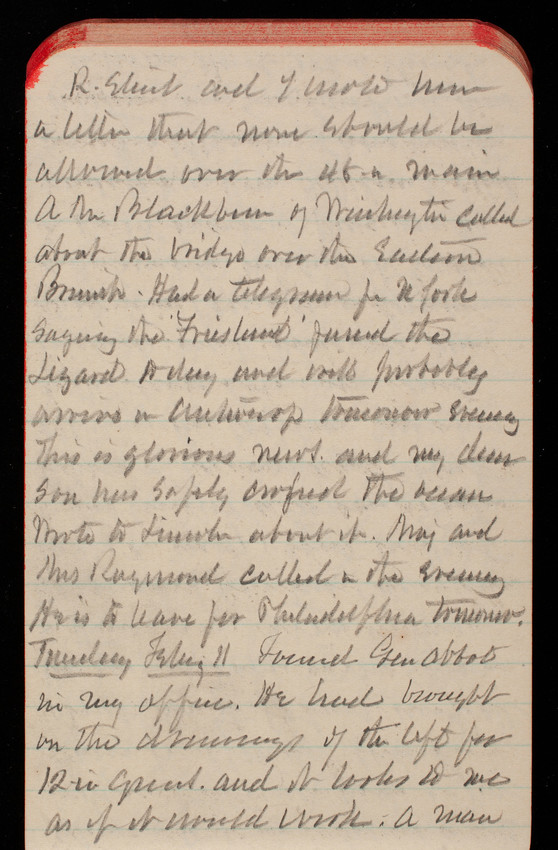 R. Eliot and I wrote him
a letter that none should be
allowed over the 48 in. main
A Mr Blackburn of Washington called
about the bridge over the Eastern
Branch. Had a telegram fr N York
saying the 'Friesland' passed the
Lizard to day and will probably
arrive in Antwerp tomorrow evening
This is glorious news. and my dear
son has safely crossed the ocean
Wrote to Lincoln about it. Maj and
Mrs Raymond called in the evening
He is to leave for Philadelphia tomorrow.
Tuesday Feby 11 Found Gen Abbot
in my office. He had brought
on the drawings of the lift for
12 in guns. and it looks to me
as if it would work. A man